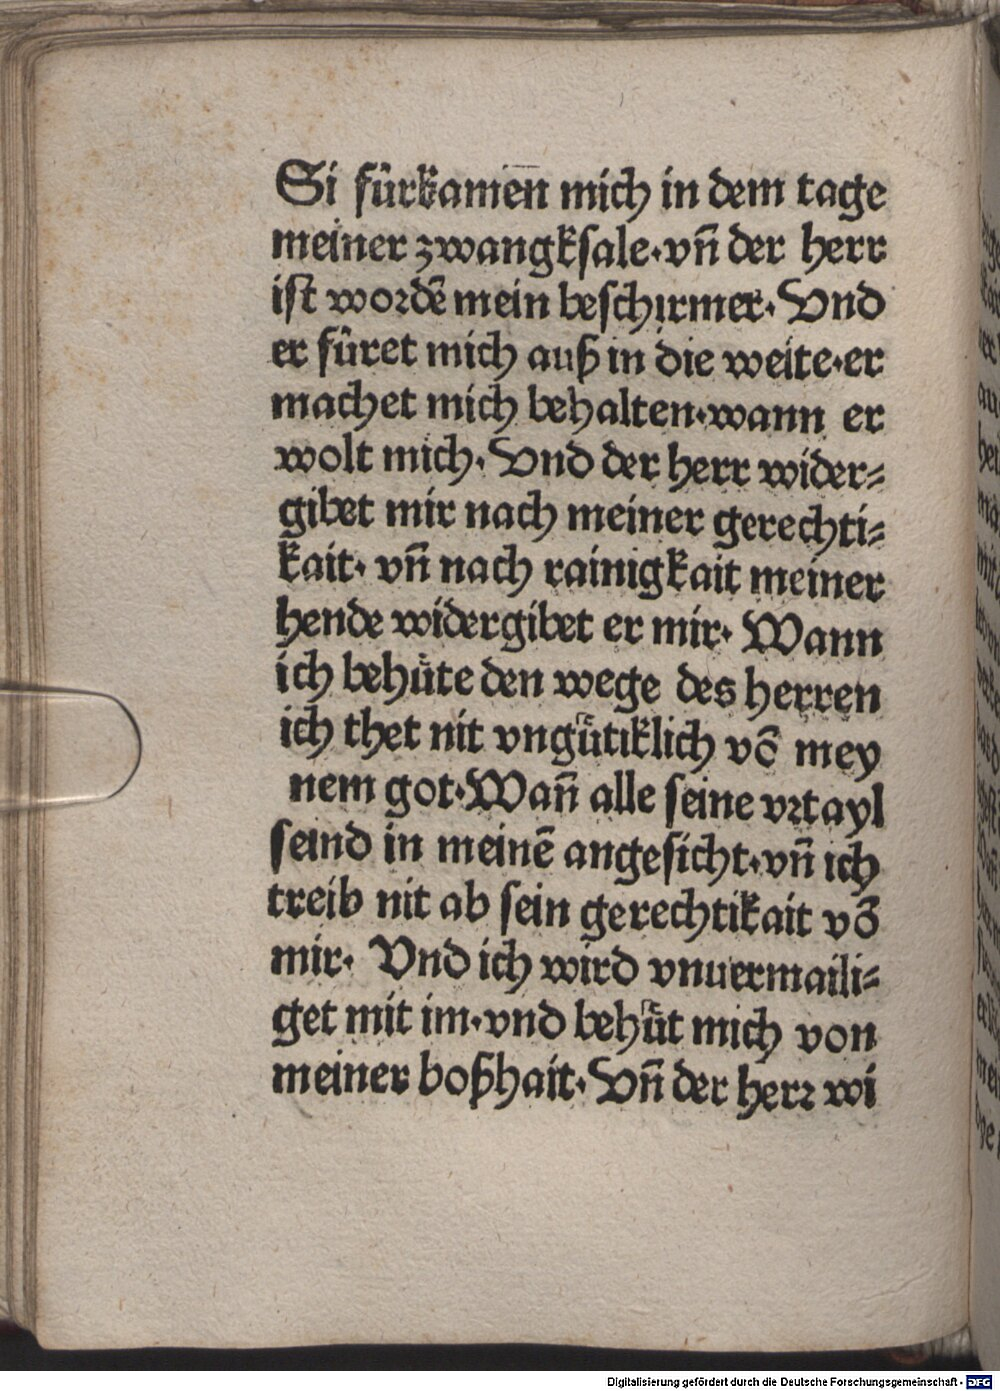 Si fürkamen̄ mich in dem tage
meiner zwangksale·vn̄ der herr
ist wordē mein beschirmer· Vnd
er füret mich auß in die weite·er
machet mich behalten·wann er
wolt mich· Vnd der herr wider⸗
gibet mir nach meiner gerechti⸗
kait· vn̄ nach rainigkait meiner
hende widergibet er mir· Wann
ich behuͤte den wege des herren
ich thet nit vnguͤtiklich vō mey
nem got·Wan̄ alle seine vrtayl
seind in meinē angesicht·vn̄ ich
treib nit ab sein gerechtikait vō
mir· Vnd ich wird vnuermaili⸗
get mit im·vnd behuͤt mich von
meiner boßhait· Vn̄ der herr wi
Digitalisierung gefördert durch die Deutsche Forschungsgemeinschaft - DFG